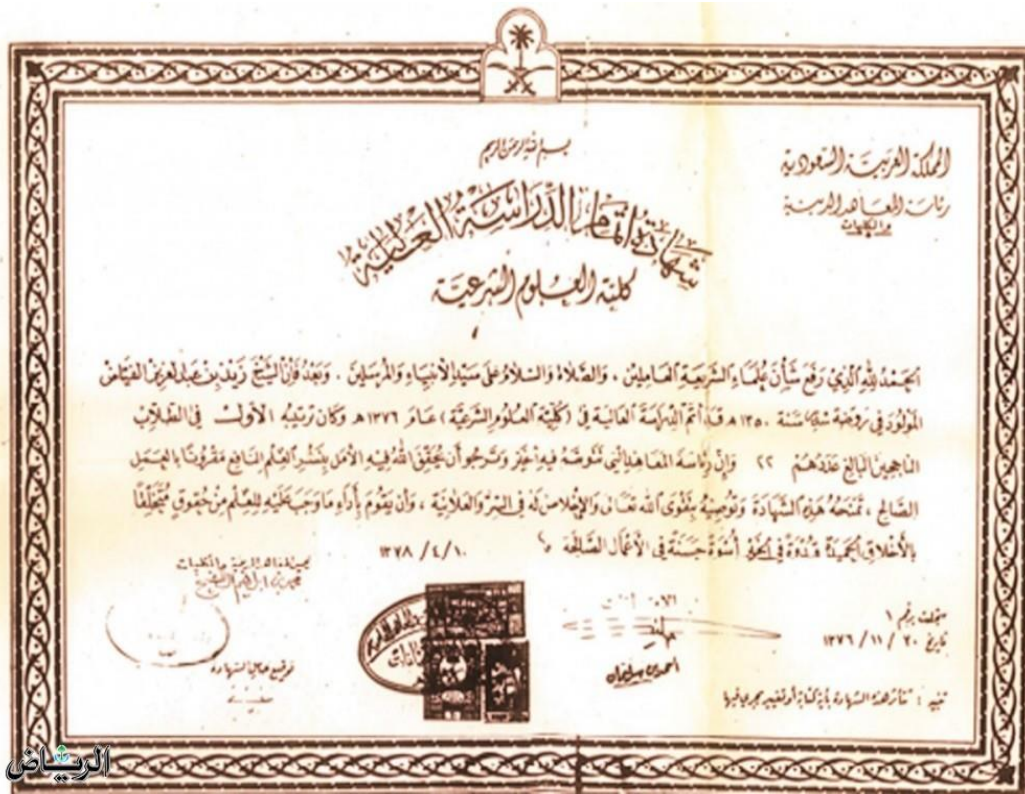 بسم الله الرحمن الرحيم
المملكة العربية السعودية
رئاسة المعاهد الدينية
والكليات
شهادة اتمام الدراسة العالية
كلية العلوم الشرعية
الحمد لله الذي رفع شأن علماء الشريعة العاملين ، والصلاة والسلام على سيد الأنبياء والمرسلين ، وبعد فإن الشيخ زيد بن عبد العزيز الفياض
المولود في روضة سدير سنة ١٣٥٠ هـ قد أتم الدراسة العالية في (كلية العلوم الشرعية) عام ١٣٧٦ هـ وكان ترتيبه الأول في الطلاب
الناجحين البالغ عددهم ٢٢ وإن رئاسة المعاهد التي تتوسم فيه الخير وترجو أن يحقق الله فيه الأمل بنشر العلم النافع مقرونا بالعمل
الصالح ، تمنحه هذه الشهادة وتوصيه بتقوى الله تعالى والإخلاص له في السر والعلانية ، وأن يقوم بأداء ما وجب عليه للعلم من حقوق متخلقا
بالأخلاق الحميدة قدوة في الخير أسوة حسنة في الأعمال الصالحة
١٣٧٨ / ٤ / ١٠
محمد بن ابراهيم
توقيع حامل الشهادة
أحمد بن سليمان
سجلت برقم ١
تاريخ ٢٠ / ١١ / ١٣٧٦
هذه الشهادة بأية كتابة أو تغيير يجري فيها
الرياض